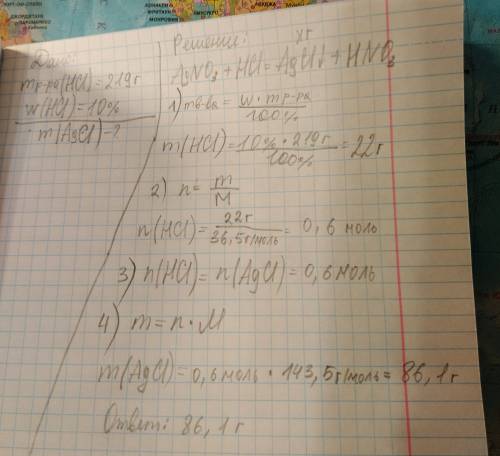 Дано:
mр-ра(HCl)=219г
w(HCl)=10%
m(AgCl)-?
Решение:
xг
AgNO₃+HCl=AgCl↓+HNO₃
1) mв-ва = w·mр-ра/100%
m(HCl)=10%·219г/100%=22г
2) n=m/M
n(HCl)=22г/36,5г/моль=0,6 моль
3) n(HCl)=n(AgCl)=0,6 моль
4) m=n·M
m(AgCl)=0,6 моль·143,5г/моль=86,1г
Ответ: 86,1г